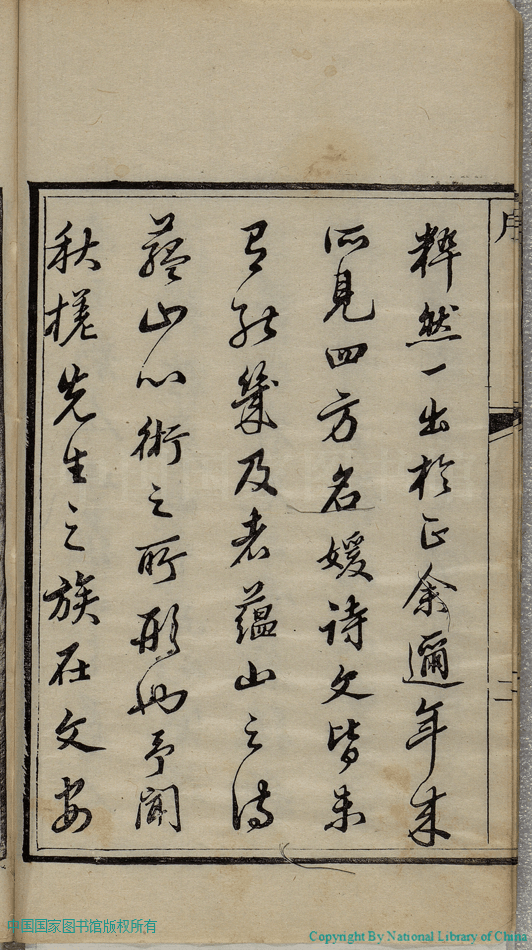 序
粹然一出於正余邇年来
所見四方名媛詩文皆未
有能幾及者蘊山之詩
蘊山心術之所形也予聞
秋槎先生之族在文安
二
中国国家图书馆版权所有
Copyright By National Library of China